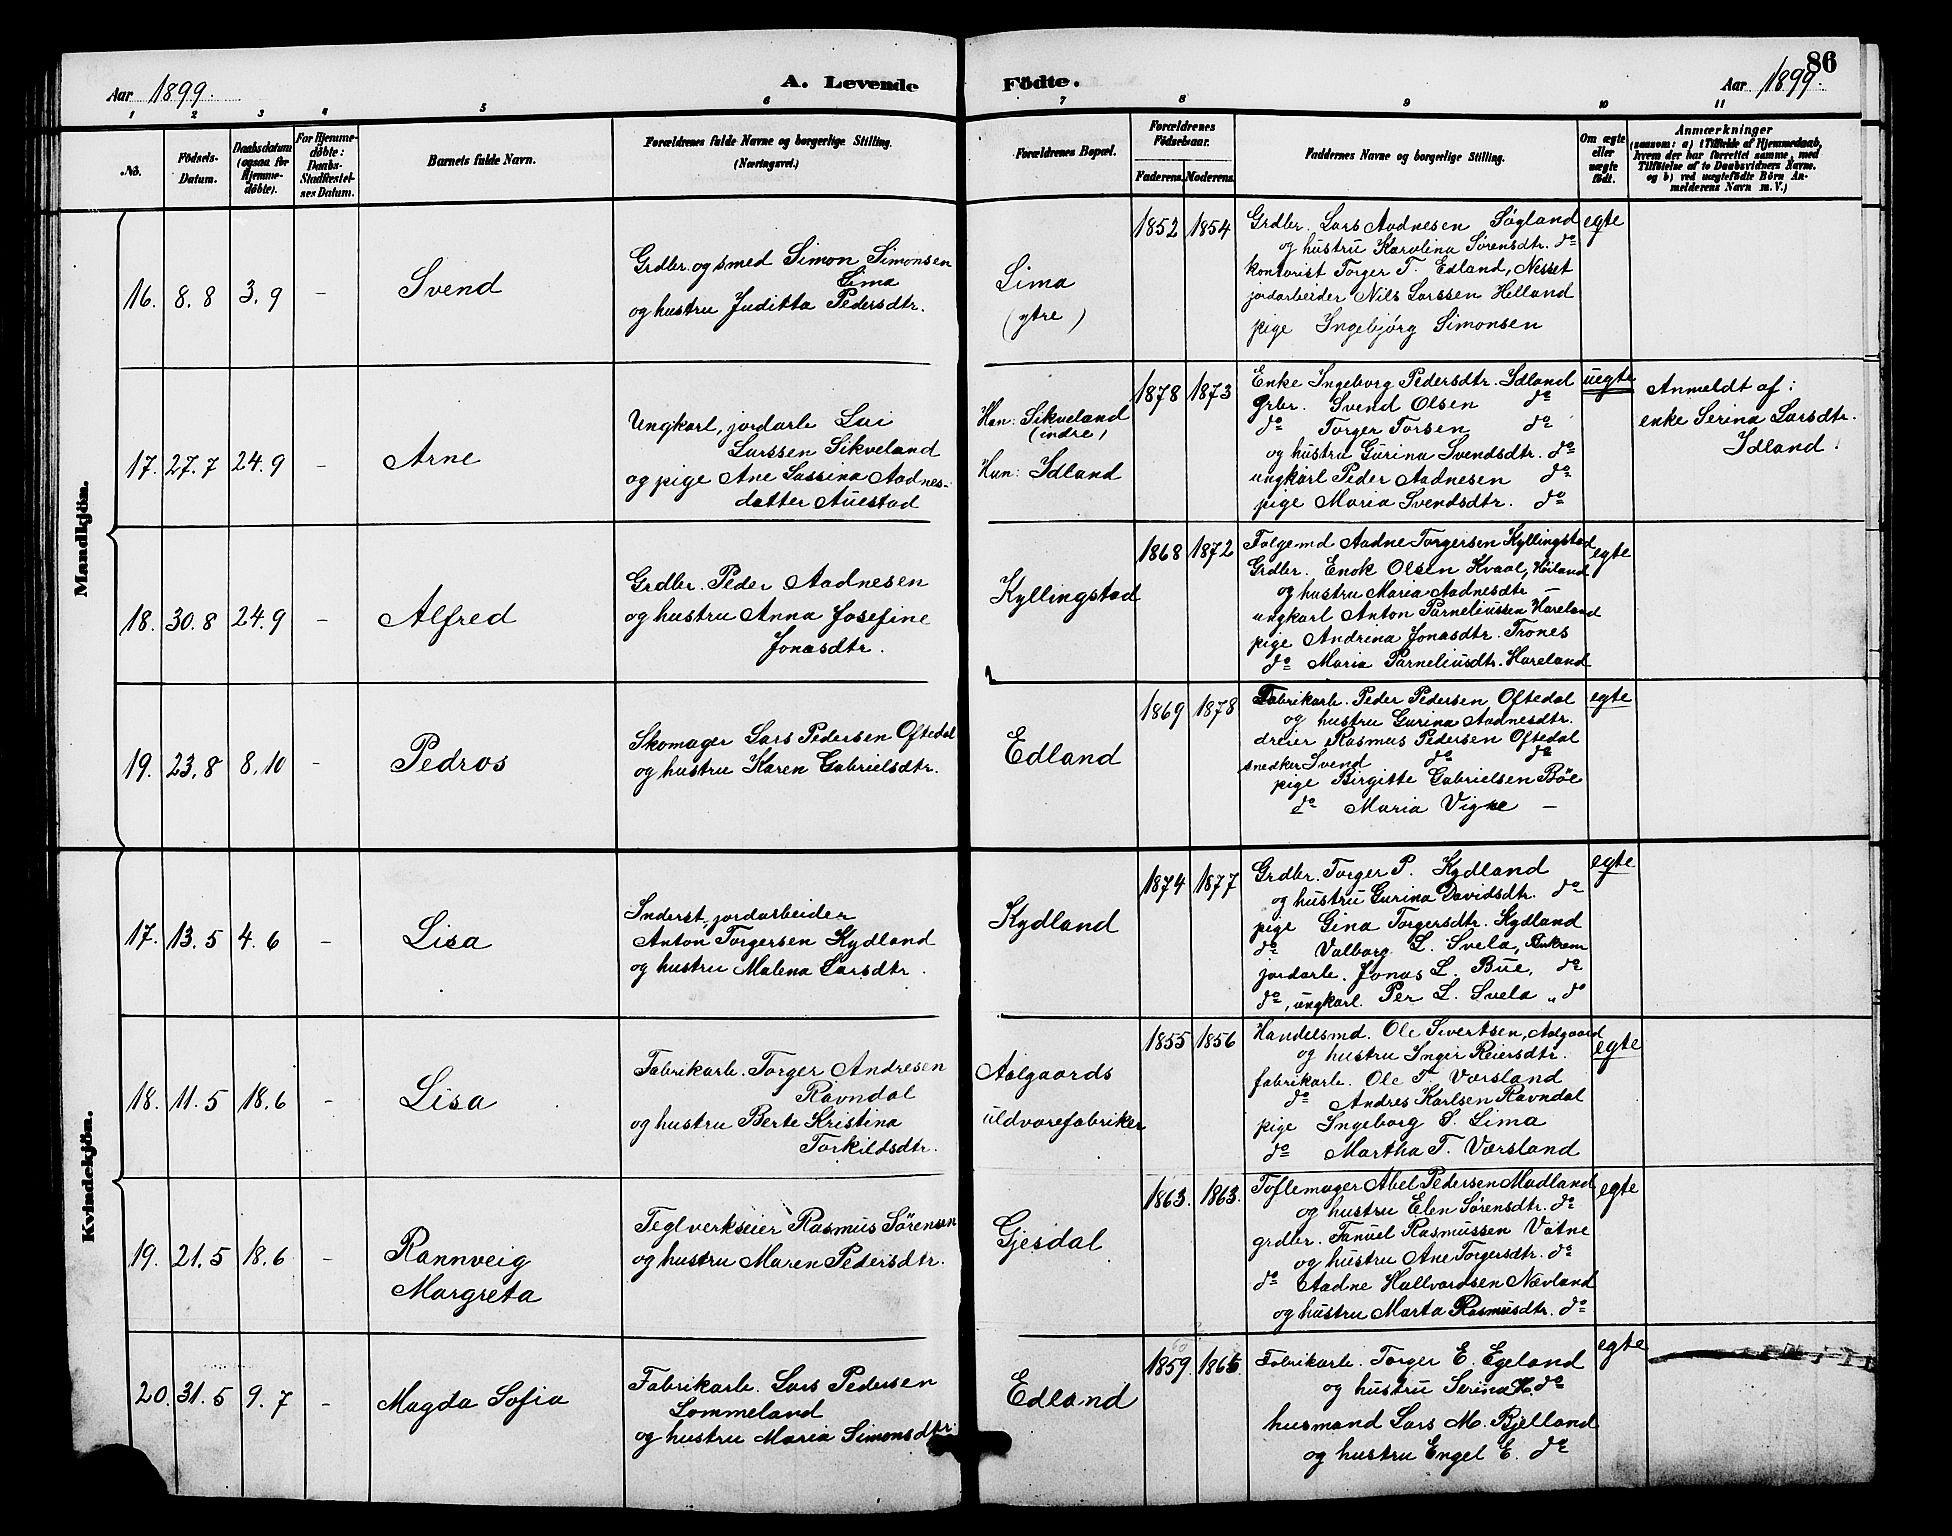 86
Aar 1899.
A. Levende Födte.
Aar 1899.
1 2 3 4 5 6 7 8 9 10 11
No.
Födsels-
Datum.
Daabsdatum
(ogsaa for
Hjemme-
döbte).
For Hjemme-
döbte:
Daabs-
Stadfæstel-
ses Datum.
Barnets fulde Navn.
Forældrenes fulde Navne og borgerlige Stilling.
(Næringsvei.)
Forældrenes Bopæl.
Forældrenes
Födselsaar.
Faderens. Moderens.
Faddernes Navne og borgerlige Stilling.
Om ægte
eller
uægte
født.
Anmærkninger
(saasom: a) i Tilfælde af Hjemmedaab,
hvem der har forrettet samme, med
Tilföielse af to Daabsvidners Navne.
og b) ved uægtefödte Börn An-
melderens Navn m. V.)
Mandkjön.
16. 8.8 3.9 –
Svend
Grdbr. og smed Simon Simonsen
Lima
og hustru Juditta Pedersdtr.
Lima
(ytre)
1852 1854
Grdbr. Lars Aadnesen Søyland
og hustru Karolina Sørensdtr. do
kontorist Torger T. Edland, Nesset
jordarbeider Nils Larssen Helland
pige Ingebjørg Simonsen
egte
17. 27.7 24.9 –
Arne
Ungkarl, jordarb. Lui
Larssen Sikveland
og pige Ane Sassina Aadnes-
datter Auestad
Han: Sikveland
(indre)
Hun: Ydland
1878 1873
Enke Ingeborg Pedersdtr. Ydland
grbr. Svend Olsen do
do Torger Torsen do
og hustru Gurina Svendsdtr. do
ungkarl Peder Aadnesen do
pige Maria Svendsdtr. do
uegte
Anmeldt af:
enke Serina Larsdtr.
Ydland.
18. 30.8 24.9 –
Alfred
Grdbr. Peder Aadnesen
og hustru Anna Josefine
Jonasdtr.
Kyllingstad
1868 1872
Folgemd Aadne Torgersen Kyllingstad
Grdbr. Enok Olsen Kvaal, Høiland
og hustru Maria Aadnesdtr –
ungkarl Anton Parneliussen Hareland
pige Andrina Jonasdtr. Trones
do Maria Parneliusdtr. Hareland
egte
19. 23.8 8.10 –
Pedros
Skomager Lars Pedersen Oftedal
og hustru Karen Gabrielsdtr.
Edland
1869 1878
Fabrikarb. Peder Pedersen Oftedal
og hustru Gurina Aadnesdtr.
dreier Rasmus Pedersen Oftedal
snedker Svend do do
pige Birgitte Gabrielsen Böe
do Maria Vigne –
egte
Kvindekjön.
17. 13.5 4.6 –
Lisa
Inderst, jordarbeider
Anton Torgersen Kydland
og hustru Malena Larsdtr.
Kydland
1874 1877
Grdbr. Torger P. Kydland
og hustru Gurina Davidsdtr. do
pige Gina Torgersdtr. Kydland
do Valborg L. Svela,
jordarb. Jonas L. Bue, do
do, ungkarl. Per L. Svela „ do
egte
18. 11.5 18.6 –
Lisa
Fabrikarb. Torger Andresen
Ravndal
og hustru Berte Kristina
Torkildsdtr.
Aalgaards
uldvarefabriker
1855 1856
Handelsmd. Ole Sivertsen, Aalgaard
og hustru Inger Reiersdtr.
fabrikarb. Ole T. Varsland
do Andres Karlsen Ravndal
pige Ingeborg S. Lima
do Martha T. Varsland
egte
19. 21.5 18.6 –
Rannveig
Margreta
Teglverkseier Rasmus Sörensen
og hustru Maren Pedersdtr.
Gjesdal
1863. 1863.
Toflemager Abel Pedersen Madland
og hustru Elen Sørensdtr. do
grdbr. Fanuel Rasmussen Vatne
og hustru Ane Torgersdtr. do
do Aadne Hallvardsen Nævland
og hustru Marta Rasmusdtr. do
egte
20. 31.5 9.7 –
Magda Sofia
Fabrikarb. Lars Pedersen
Lommeland
og hustru Maria Simonsdtr
Edland
1859 1865
Fabrikarb. Torger E. Egeland
og hustru Serina H. do
husmand Lars M. Bjelland
og hustru Engel E. do
egte